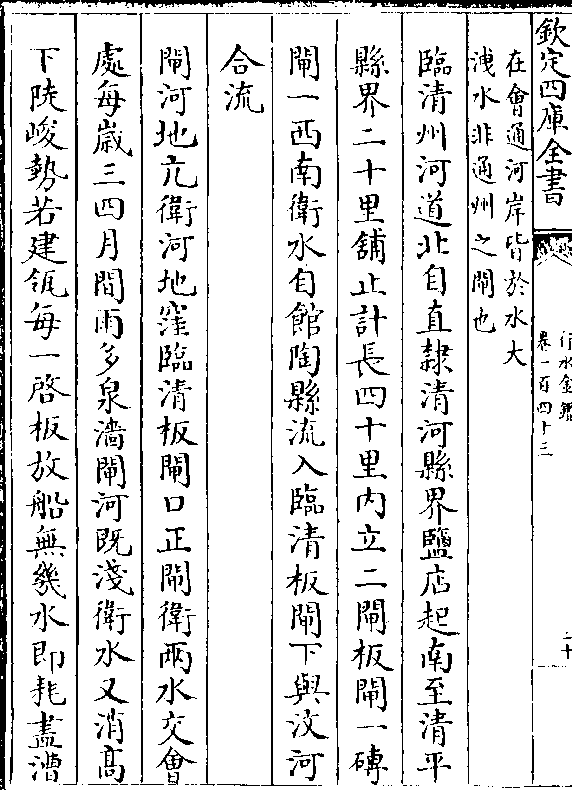 欽定四庫全書
行水金鑑
卷一百四十三
二十
在會通河岸皆於水大
洩水非通州之閘也
臨清州河道北自直隸清河縣界鹽店起南至清平
縣界二十里舖止計長四十里內立二閘板閘一磚
閘一西南衛水自館陶縣流入臨清板閘下與汶河
合流
閘河地亢衛河地窪臨清板閘口正閘衛兩水交會
處每歳三四月間雨多泉濇閘河既淺衛水又消髙
下陡峻勢若建瓴每一啓板放船無幾水即耗盡漕